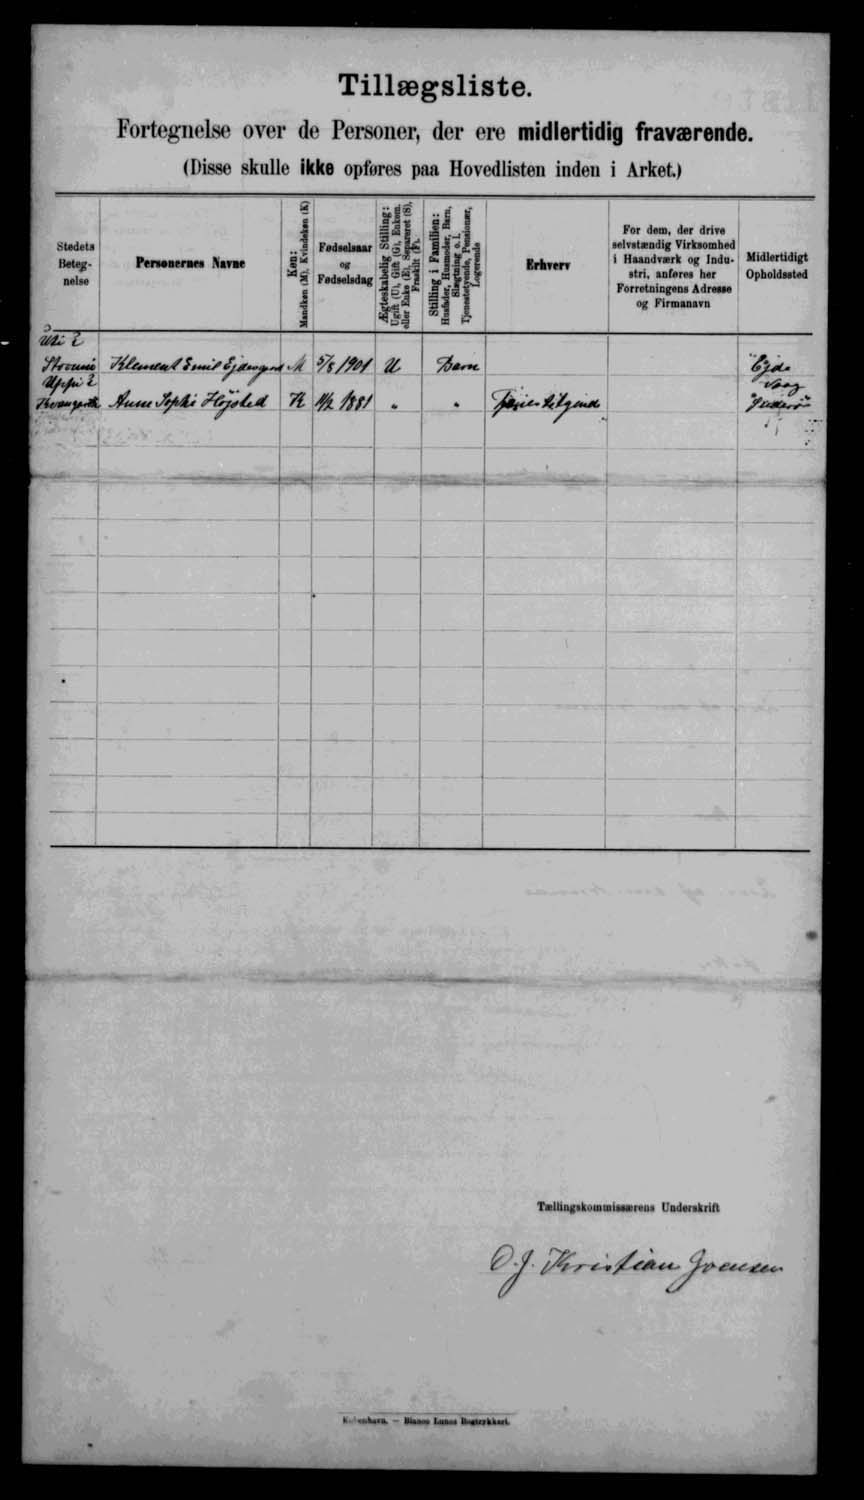 Tillægsliste.
Fortegnelse over de Personer, der ere midlertidig fraværende.
(Disse skulle ikke opføres paa Hovedlisten inden i Arket.)
Stedets
Beteg-
nelse
Personernes Navne
Køn:
Mandkøn (M), Kvindekøn (K)
Fødselsaar
og
Fødselsdag
Ægteskabelig Stilling:
Ugift (U), Gift (G), Enkem.
eller Enke (E), Separeret (S),
Fraskilt (F).
Stilling i Familien:
Husfader, Husmoder, Barn,
Slægtning o. l.
Tjenestetyende, Pensionær,
Logerende
Erhverv
For dem, der drive
selvstændig Virksomhed
i Haandværk og Indu-
stri, anføres her
Forretningens Adresse
og Firmanavn
Midlertidigt
Opholdssted
Uti í
Stovuni Klement Emil Ejdesgaard M 5/8 1901 U Barn Ejde
Uppi í Vaag
Anne Sophie Højsted K 1881 " " Suderø
Tællingskommissærens Underskrift
O. J. Kristian Joensen
København. — Bianco Lunos Bogtrykkeri.